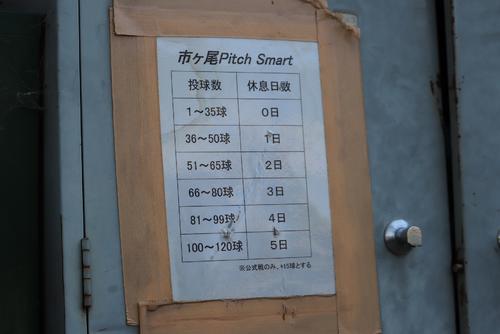 市ヶ尾Pitch Smart
投球数 休息日数
1～35球 0日
36～50球 1日
51～65球 2日
66～80球 3日
81～99球 4日
100～120球 5日
※公式戦のみ、+15球とする